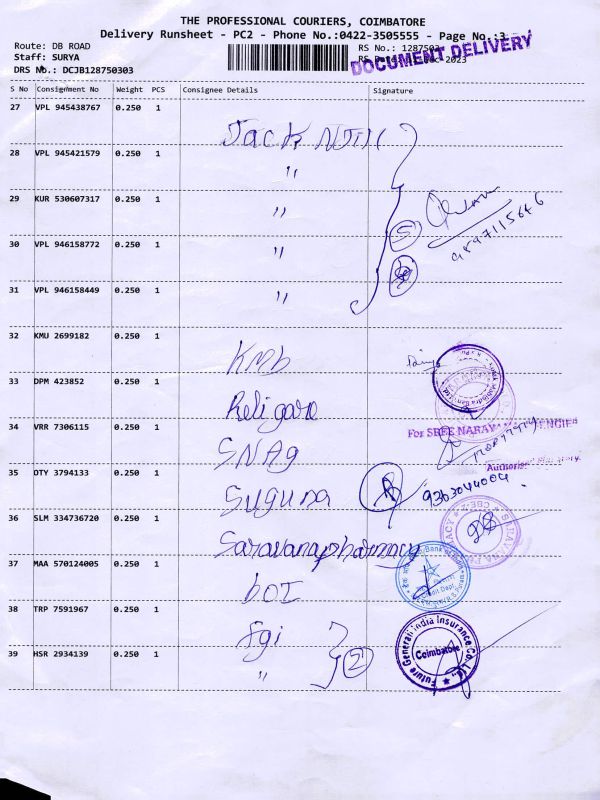 THE PROFESSIONAL COURIERS, COIMBATORE
Delivery Runsheet - PC2 - Phone No.:0422-3505555 - Page No.:3
Route: DB ROAD
RS No.: 1287503
Staff: SURYA
2023
DOCUMENT DELIVERY
DRS No.: DCJB128750303
S No Consignment No Weight PCS Consignee Details Signature
27 VPL 945438767 0.250 1
28 VPL 945421579 0.250 1 "
29 KUR 530607317 0.250 1 "
5
9897115646
30 VPL 946158772 0.250 1 "
31 VPL 946158449 0.250 1 "
32 KMU 2699182 0.250 1 KMb
33 DPM 423852 0.250 1 Religare
For SREE NARAYANA AGENCIES
34 VRR 7306115 0.250 1 SNAg
Authorised Signatory
35 DTY 3794133 0.250 1 Suguna
9363044004
36 SLM 334736720 0.250 1 Saravanapharmacy
37 MAA 570124005 0.250 1 bOI
38 TRP 7591967 0.250 1 fgi
Future Generali India Insurance Co. Ltd.
Coimbatore
39 HSR 2934139 0.250 1 " 2